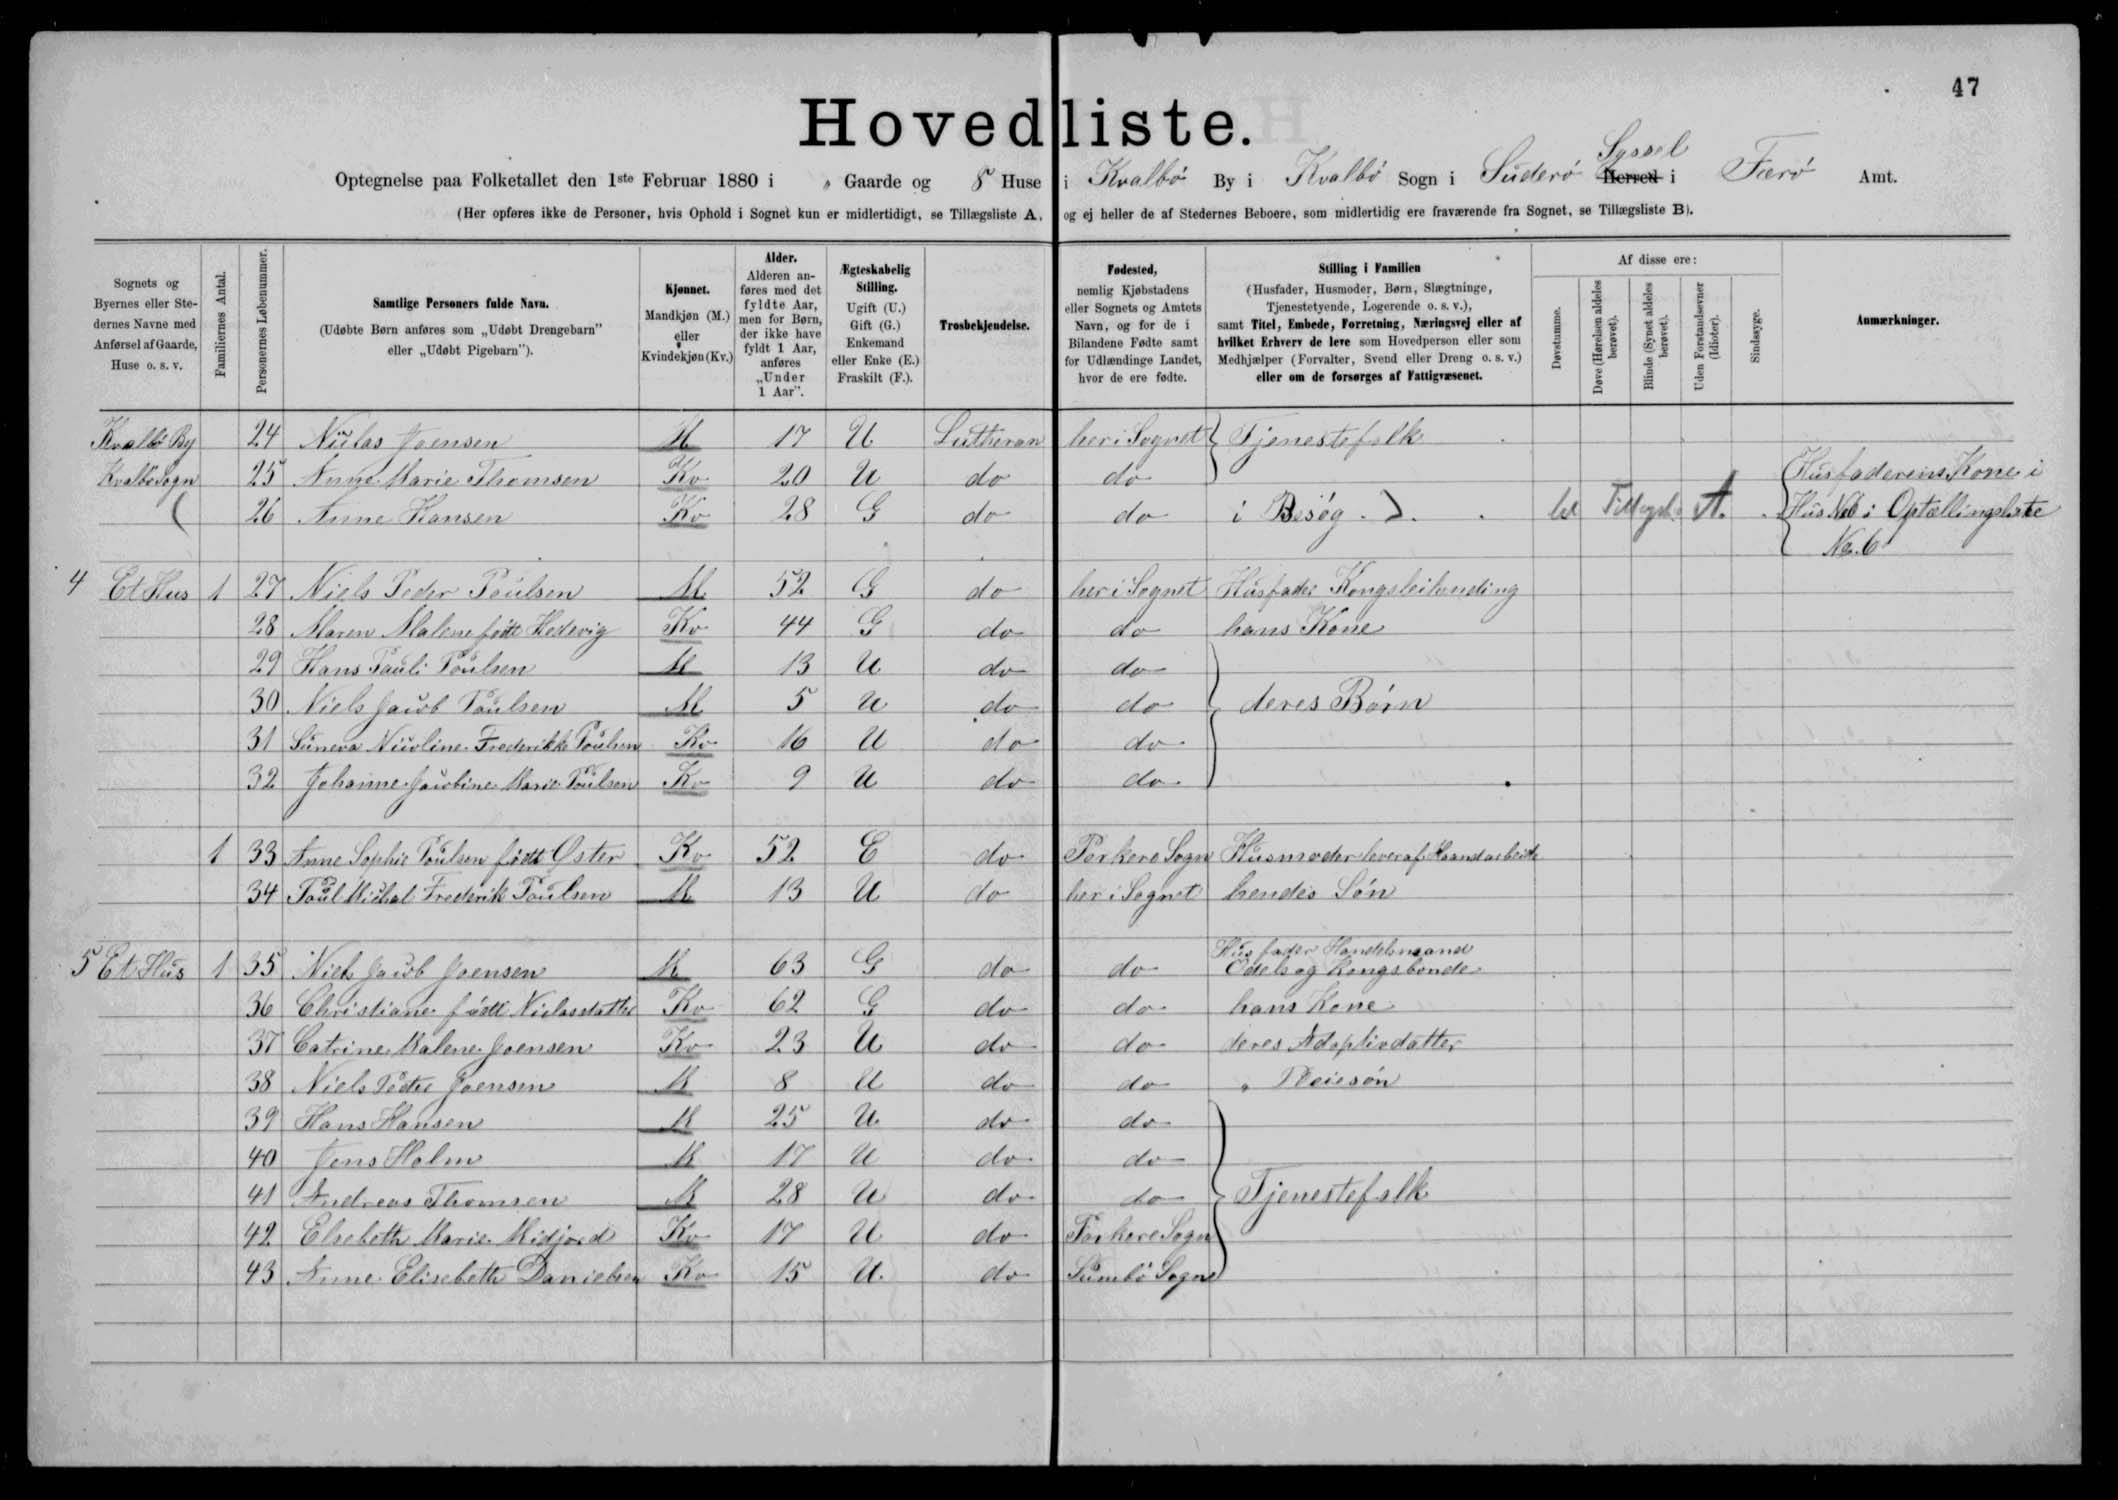 47
Hovedliste.
Optegnelse paa Folketallet den 1ste Februar 1880 i " Gaarde og 8 Huse i Kvalbø By i Kvalbø Sogn i Suderø Syssel Herred i Færø Amt.
(Her opføres ikke de Personer, hvis Ophold i Sognet kun er midlertidigt, se Tillægsliste A, og ej heller de af Stedernes Beboere, som midlertidig ere fraværende fra Sognet, se Tillægsliste B).
Sognets og Byernes eller Stedernes Navne med Anførsel af Gaarde, Huse o. s. v.
Familiernes Antal.
Personernes Løbenummer.
Samtlige Personers fulde Navn. (Udøbte Børn anføres som „Udøbt Drengebarn" eller „Udøbt Pigebarn").
Kjønnet. Mandkjøn (M.) eller Kvindekjøn (Kv.)
Alder. Alderen anføres med det fyldte Aar, men for Børn, der ikke have fyldt 1 Aar, anføres „Under 1 Aar".
Ægteskabelig Stilling. Ugift (U.) Gift (G.) Enkemand eller Enke (E.) Fraskilt (F.).
Trosbekjendelse.
Fødested, nemlig Kjøbstadens eller Sognets og Amtets Navn, og for de i Bilandene Fødte samt for Udlændinge Landet, hvor de ere fødte.
Stilling i Familien (Husfader, Husmoder, Børn, Slægtninge, Tjenestetyende, Logerende o. s. v.), samt Titel, Embede, Forretning, Næringsvej eller af hvilket Erhverv de leve som Hovedperson eller som Medhjælper (Forvalter, Svend eller Dreng o. s. v.) eller om de forsørges af Fattigvæsenet.
Af disse ere:
Døvstumme.
Døve (Hørelsen aldeles berøvet).
Blinde (Synet aldeles berøvet).
Uden Forstandsevner (Idioter).
Sindssyge.
Anmærkninger.
Kvalbø By 24 Niclas Joensen M 17 U Lutheran her i Sognet Tjenestefolk
Kvalbø Sogn 25 Anne Marie Thomsen Kv 20 U do do
26 Anne Hansen Kv 28 G do do i Besøg A. Husfaderens Kone i Hus i Optællingsliste No. 6
4 Et Hus 1 27 Niels Peder Poulsen M 52 G do her i Sognet Husfader Kongsleilending
28 Maren Malene født Hedevig Kv 44 G do do hans Kone
29 Hans Pauli Poulsen M 13 U do do
30 Niels Jacob Poulsen M 5 U do do deres Børn
31 Suneva Nicoline Frederikke Poulsen Kv 16 U do do
32 Johanne Jacobine Marie Poulsen Kv 9 U do do
1 33 Anne Sophie Poulsen født Øster Kv 52 E do Porkere Sogn Husmoder lever af Haandarbeide
34 Poul Michal Frederik Poulsen M 13 U do her i Sognet hendes Søn
5 Et Hus 1 35 Niels Jacob Joensen M 63 G do do Husfader Handelsmand Odels og Kongsbonde
36 Christiane født Niclasdatter Kv 62 G do do hans Kone
37 Catrine Malene Joensen Kv 23 U do do deres Adoptivdatter
38 Niels Peder Joensen M 8 U do do " Pleiesøn
39 Hans Hansen M 25 U do do
40 Jens Holm M 17 U do do
41 Andreas Thomsen M 28 U do do Tjenestefolk
42 Elsebeth Marie Midjord Kv 17 U do Porkere Sogn
43 Anne Elisebeth Danielsen Kv 15 U. do Sumbø Sogn